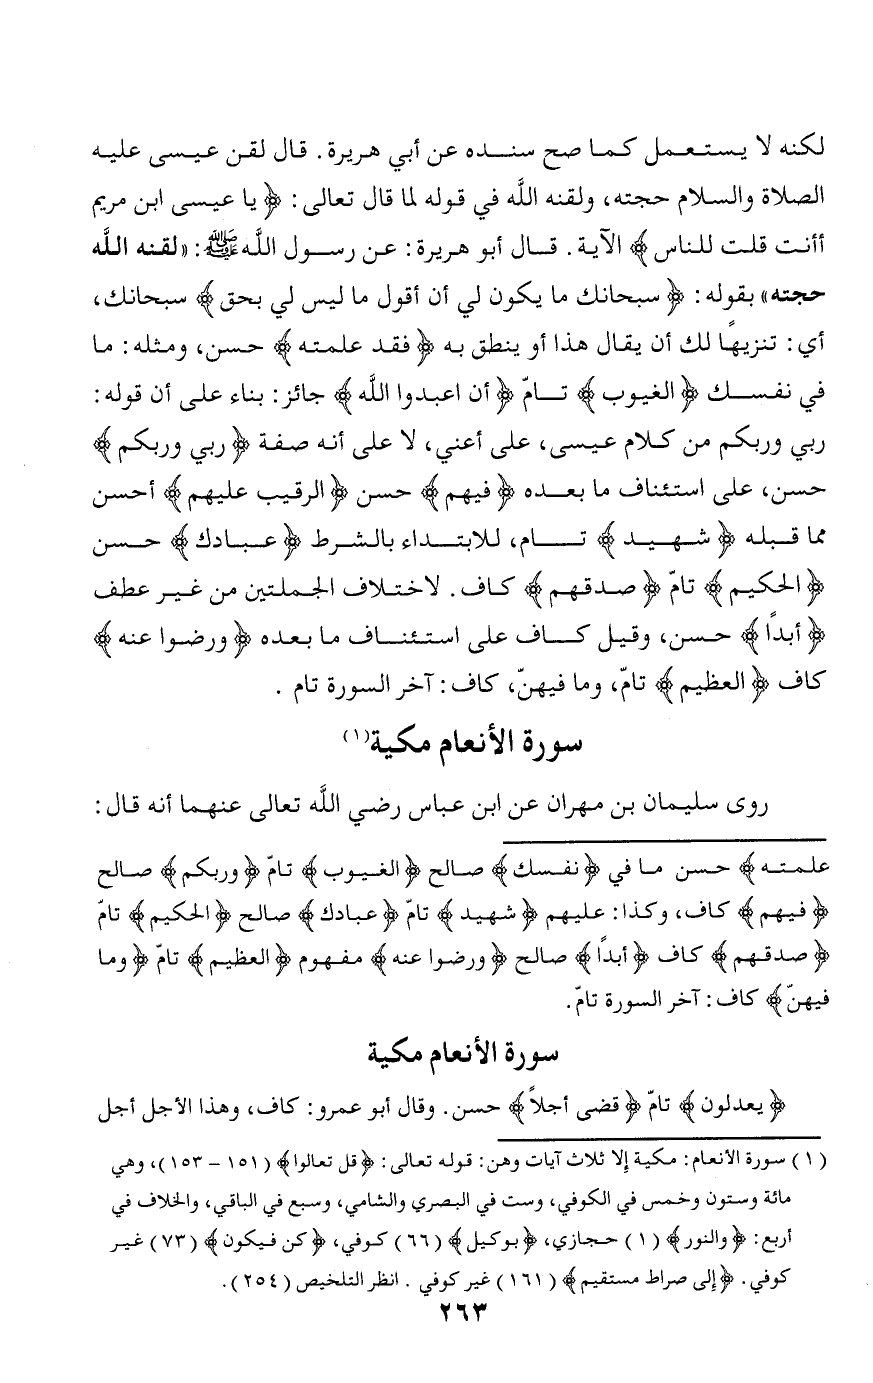 لكنه لا يستعمل كما صح سنده عن أبي هريرة. قال لقن عيسى عليه
الصلاة والسلام حجته، ولقنه اللَّه في قوله لما قال تعالى: ﴿ يا عيسى ابن مريم
أأنت قلت للناس ﴾ الآية. قال أبو هريرة: عن رسول اللَّه ﷺ: «لقنه اللَّه
حجته» بقوله: ﴿ سبحانك ما يكون لي أن أقول ما ليس لي بحق ﴾ سبحانك،
أي: تنزيهًا لك أن يقال هذا أو ينطق به ﴿ فقد علمته ﴾ حسن، ومثله: ما
في نفسك ﴿ الغيوب ﴾ تامّ ﴿ أن اعبدوا اللَّه ﴾ جائز: بناء على أن قوله:
ربي وربكم من كلام عيسى، على أعني، لا على أنه صفة ﴿ ربي وربكم ﴾
حسن، على استئناف ما بعده ﴿ فيهم ﴾ حسن ﴿ الرقيب عليهم ﴾ أحسن
مما قبله ﴿ شهيد ﴾ تام، للابتداء بالشرط ﴿ عبادك ﴾ حسن
﴿ الحكيم ﴾ تامّ ﴿ صدقهم ﴾ كاف. لاختلاف الجملتين من غير عطف
﴿ أبدًا ﴾ حسن، وقيل كاف على استئناف ما بعده ﴿ ورضوا عنه ﴾
كاف ﴿ العظيم ﴾ تامّ، وما فيهنّ، كاف: آخر السورة تام .
سورة الأنعام مكية(١)
روى سليمان بن مهران عن ابن عباس رضي اللَّه تعالى عنهما أنه قال:
علمته ﴾ حسن ما في ﴿ نفسك ﴾ صالح ﴿ الغيوب ﴾ تامّ ﴿ وربكم ﴾ صالح
﴿ فيهم ﴾ كاف، وكذا: عليهم ﴿ شهيد ﴾ تامّ ﴿ عبادك ﴾ صالح ﴿ الحكيم ﴾ تامّ
﴿ صدقهم ﴾ كاف ﴿ أبدًا ﴾ صالح ﴿ ورضوا عنه ﴾ مفهوم ﴿ العظيم ﴾ تامّ ﴿ وما
فيهنّ ﴾ كاف: آخر السورة تامّ.
سورة الأنعام مكية
﴿ يعدلون ﴾ تامّ ﴿ قضى أجلاً ﴾ حسن. وقال أبو عمرو: كاف، وهذا الأجل أجل
(١) سورة الأنعام: مكية إلا ثلاث آيات وهن: قوله تعالى: ﴿ قل تعالوا ﴾ (١٥١ – ١٥٣)، وهي
مائة وستون وخمس في الكوفي، وست في البصري والشامي، وسبع في الباقي، والخلاف في
أربع: ﴿ والنور ﴾ (١) حجازي، ﴿ بوكيل ﴾ (٦٦) كوفي، ﴿ كن فيكون ﴾ (٧٣) غير
كوفي. ﴿ إلى صراط مستقيم ﴾ (١٦١) غير كوفي . انظر التلخيص (٢٥٤).
٢٦٣